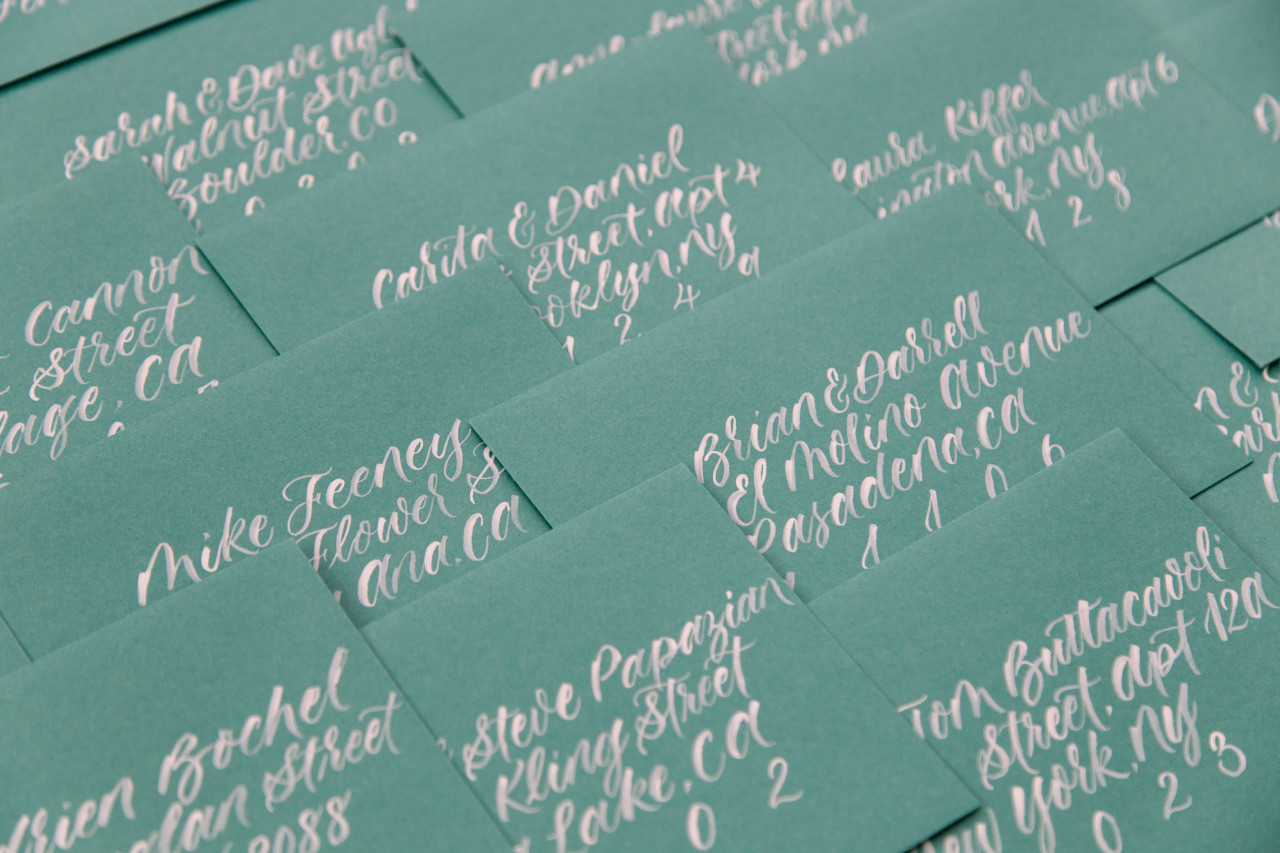 Sarah & Dave
Walnut Street
Boulder, CO
Street, apt
Laura Kiffer
Avenue, apt 6
NY
1 2 8
Carita & Daniel
Street, apt 4
NY
2 4
Cannon
Street
CA
Brian & Darrell
El Molino Avenue
Pasadena, CA
1 1 0 6
Mike Feeney
Flower
Ana, CA
Steve Papazian
Kling Street
Lake, CA
0 2
Tom Buttacavoli
Street, apt 12A
New York, NY
0 2 3
Bochel
Street
2088